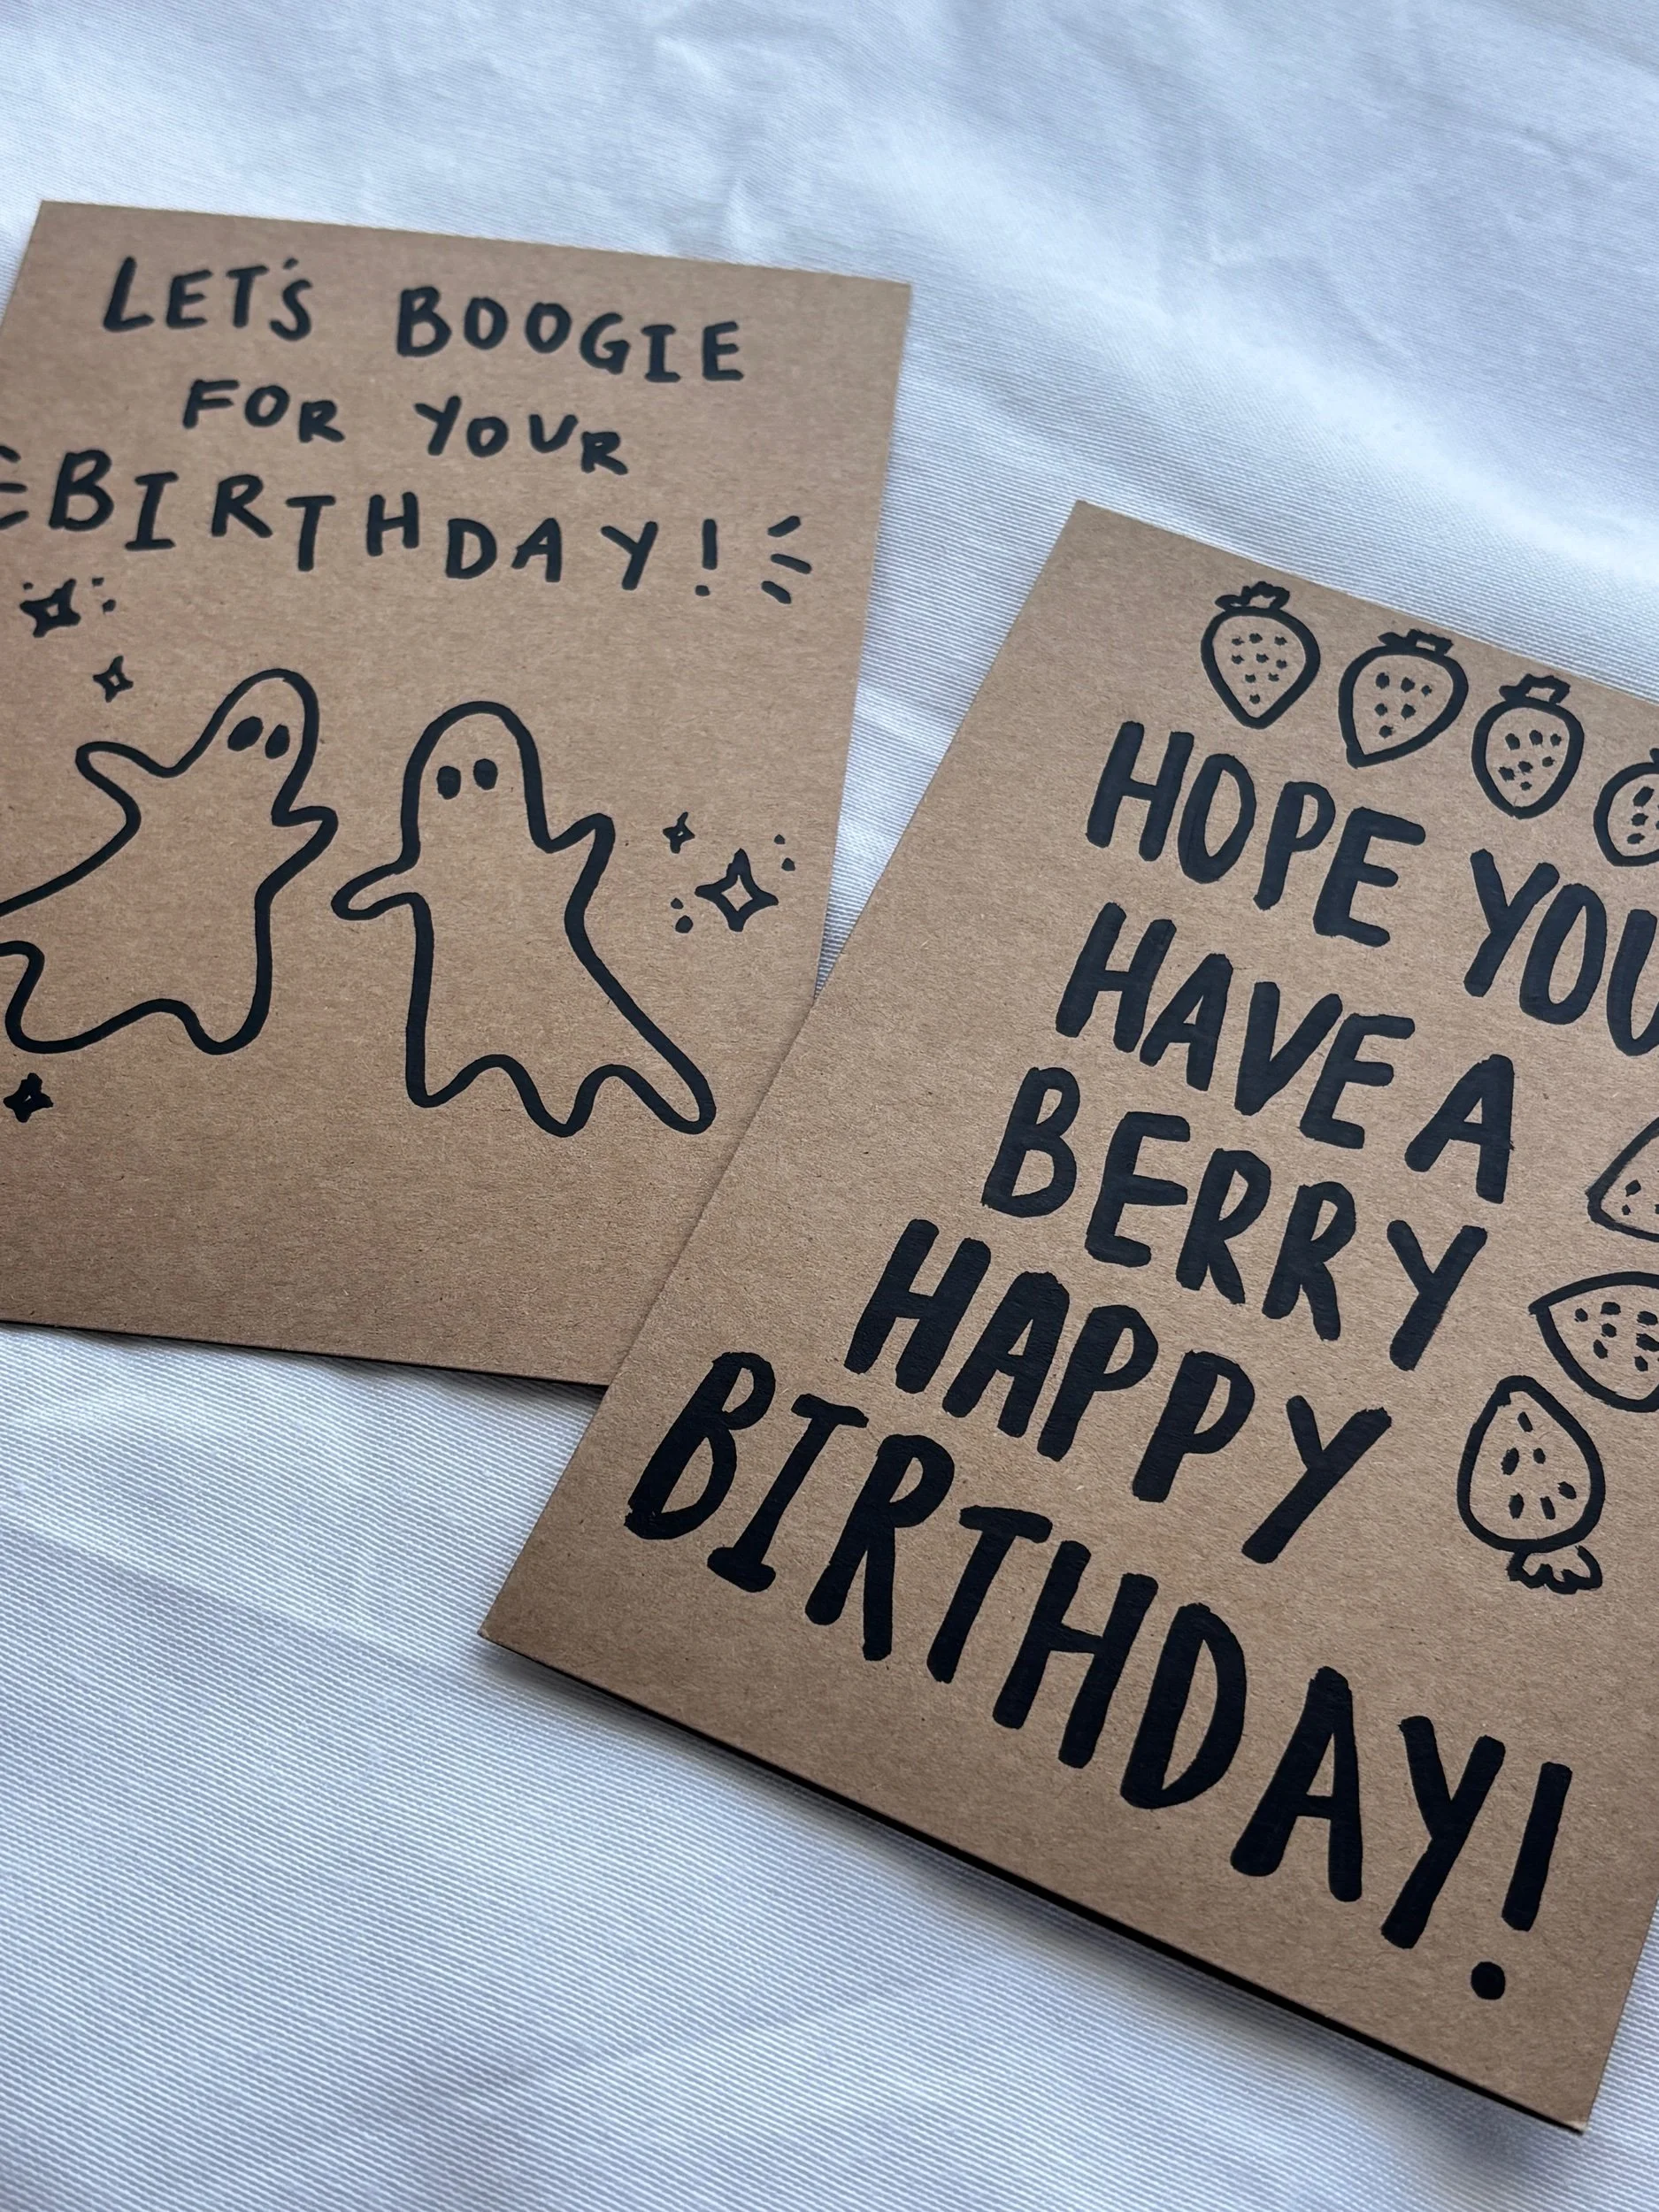 LET'S BOOGIE
FOR YOUR
BIRTHDAY!
HOPE YOU
HAVE A
BERRY
HAPPY
BIRTHDAY!